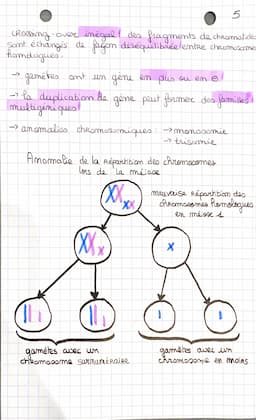 5
crossing-over inégal : des fragments de chromatides
sont échangés de façon déséquilibrée entre chromosomes
homologues.
→ gamètes ont un gène en plus ou en
→ la duplication de gène peut former des familles
multigéniques
→ anomalies chromosomiques : → monosomie
→ trisomie
Anomalie de la répartition des chromosomes
lors de la méiose
mauvaise répartition des
chromosomes homologues
en méiose 1
gamètes avec un
chromosome surnuméraire
gamètes avec un
chromosome en moins